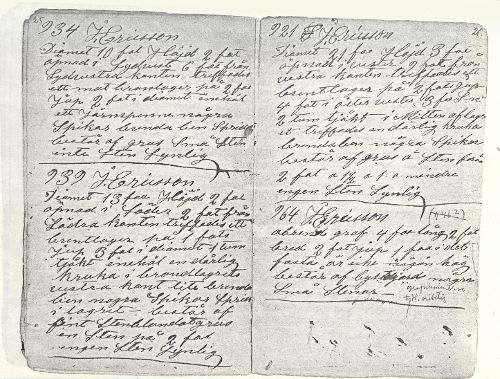 934 J. Ericsson
Diamet 10 fot Höjd 2 fot
öpnad i Sydvest 6 fot från
Sydvestra kanten träffades
ett mat brandlager på 2 fot
Jup 2 fot i diamet enhåll
ett Järnspenne några
Spikar brenda ben Spridt
består af grus Små Sten
inte Sten Synlig
939 J. Ericsson
Diamet 13 fot Höjd 2 fot
öpnad i Söder 2 fot från
Södra kanten träffades ett
brentlager på 2 fots
Jup 3 fot i diamet 1 tum
tjokt enhöll en dårlig
kruka i brandlagrets
vestra kant lite brenda
ben några Spikar Sprid
i lagret består af
fint Stenblandat grus
en Sten på 2 fot
ingen Sten Synlig
921 J. Ericsson
Diamet 21 fot Höjd 3 fot
öpnad i vester 2 fot från
vestra kanten träffades ett
brentlager på 2 fots jup
4 fot i öster vester 3 fot i
2 tum tjokt i Mitten af lagret
ett träffades en dårlig kruka
brenda ben några Spikar
består af grus o Sten från
2 fot o 1/2 o 1 o mindre
ingen Sten Synlig
964 J. Ericsson
aflend graf 4 fot lång 2 fot
bred 2 fot jup 1 fot i det
fasta är icke någon hög
består af
små Stenar